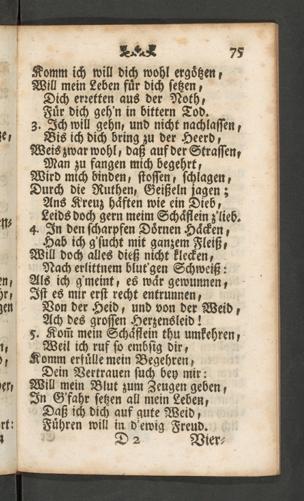 75
Komm ich will dich wohl ergötzen,
Will mein Leben für dich setzen,
Dich erretten aus der Noth,
Für dich geh'n in bittern Tod.
3. Ich will gehn, und nicht nachlassen,
Bis ich dich bring zu der Heerd,
Weis zwar wohl, daß auf der Strassen,
Man zu fangen mich begehrt,
Wird mich binden, stossen, schlagen,
Durch die Ruthen, Geißeln jagen;
Ans Kreuz häften wie ein Dieb,
Leids doch gern meim Schäflein z'lieb.
4. In den scharpfen Dörnen Häcken,
Hab ich g'sucht mit ganzem Fleiß,
Will doch alles dieß nicht klecken,
Nach erlittnem blut'gen Schweiß:
Als ich g'meint, es wär gewunnen,
Ist es mir erst recht entrunnen,
Von der Heid, und von der Weid,
Ach des grossen Herzensleid!
5. Kom̄ mein Schäflein thu umkehren,
Weil ich ruf so embsig dir,
Komm erfülle mein Begehren,
Dein Vertrauen such bey mir:
Will mein Blut zum Zeugen geben,
In G'fahr setzen all mein Leben,
Daß ich dich auf gute Weid,
Führen will in d'ewig Freud.
D 2 Vier-